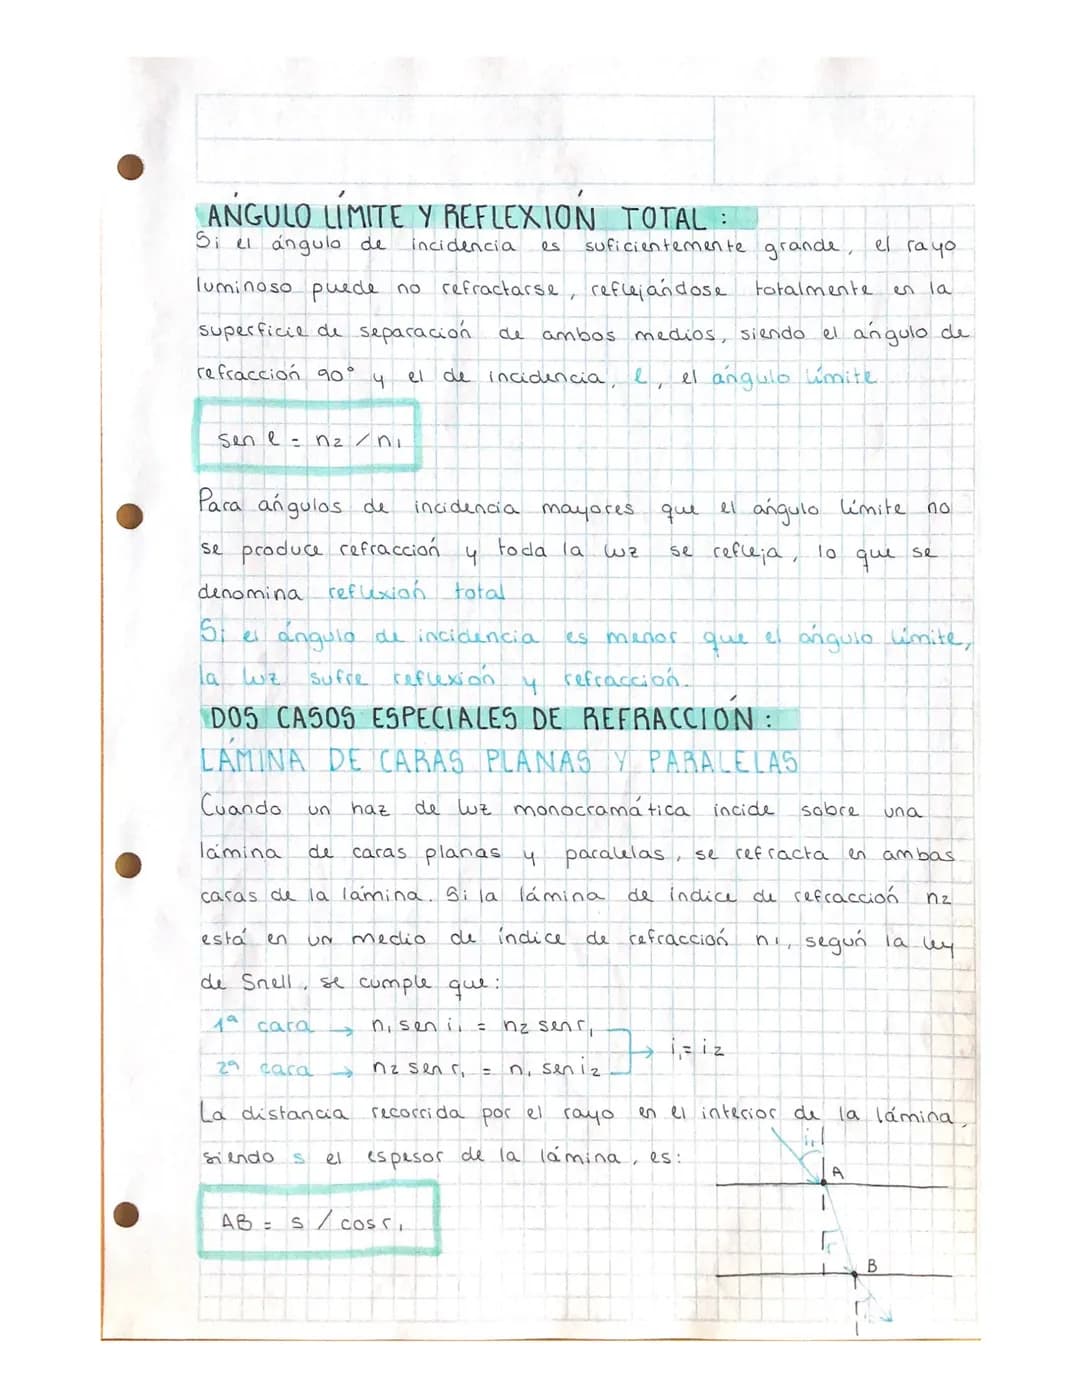 ÁNGULO LÍMITE Y REFLEXIÓN TOTAL :
Si el ángulo de incidencia es suficientemente grande, el rayo
luminoso puede no refractarse, reflejándose totalmente en la
superficie de separación de ambos medios, siendo el ángulo de
refracción 90° y el de incidencia, l, el ángulo límite
sen l = n₂ / n₁
Para ángulos de incidencia mayores que el ángulo límite no
se produce refracción y toda la luz se refleja, lo que se
denomina reflexión total
Si el ángulo de incidencia es menor que el ángulo límite,
la luz sufre reflexión y refracción.
DOS CASOS ESPECIALES DE REFRACCIÓN :
LÁMINA DE CARAS PLANAS Y PARALELAS
Cuando un haz de luz monocromática incide sobre una
lámina de caras planas y paralelas, se refracta en ambas
caras de la lámina. Si la lámina de índice de refracción n₂
está en un medio de índice de refracción n₁, según la ley
de Snell, se cumple que:
1ª cara → n₁ sen i₁ = n₂ sen r₁
→ i₁ = i₂
2ª cara → n₂ sen r₁ = n₁ sen i₂
La distancia recorrida por el rayo en el interior de la lámina,
siendo s el espesor de la lámina, es:
i₁
A
AB = s / cos r₁
r
B